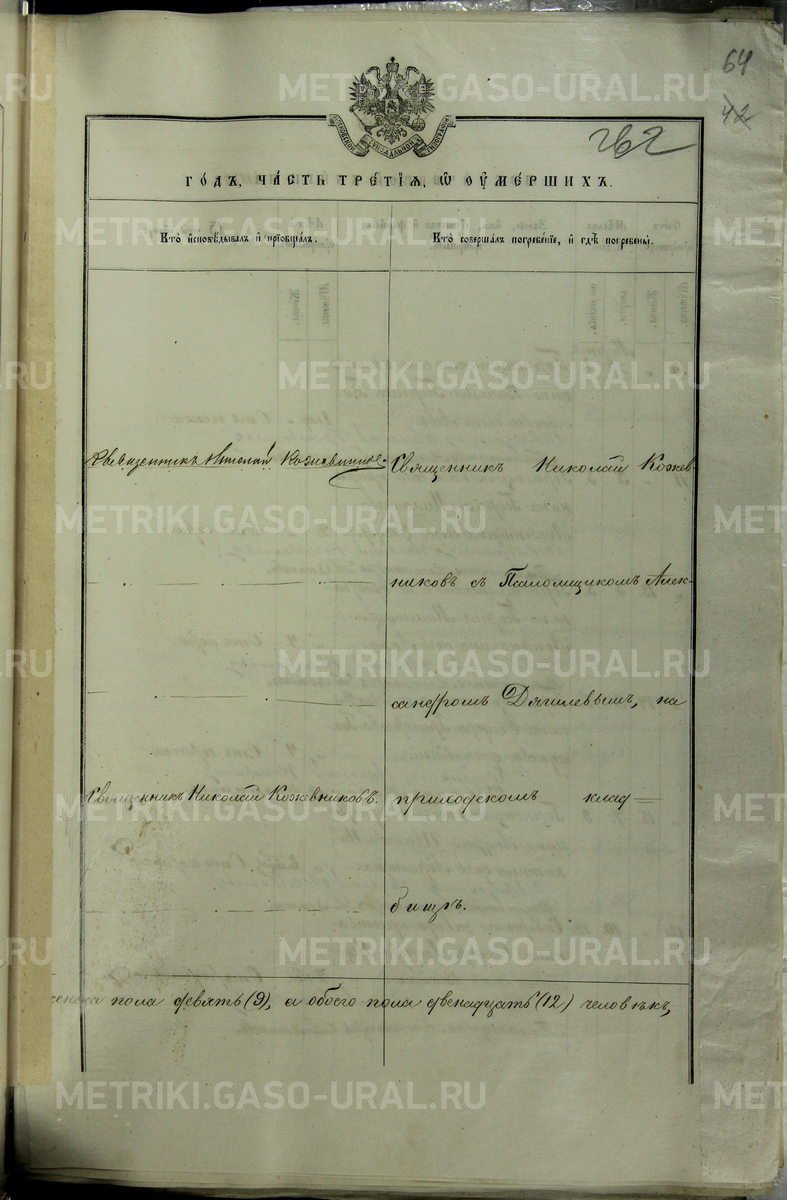 64
42
262
годъ, часть третїѧ, ѡ оумершихъ.
Кто исповѣдывалъ и прїобщалъ.
Кто совершалъ погребенїе, и гдѣ погребены.
Николай Кожевников
Священникъ Николай Кожев-
никовъ съ Псаломщикомъ Алек-
сандромъ Дягилевымъ, на
Священникъ Николай Кожевниковъ.
приходскомъ клад=
бищѣ.
женска пола девять (9), а обоего пола двенадцать (12) человѣкъ,
METRIKI.GASO-URAL.RU